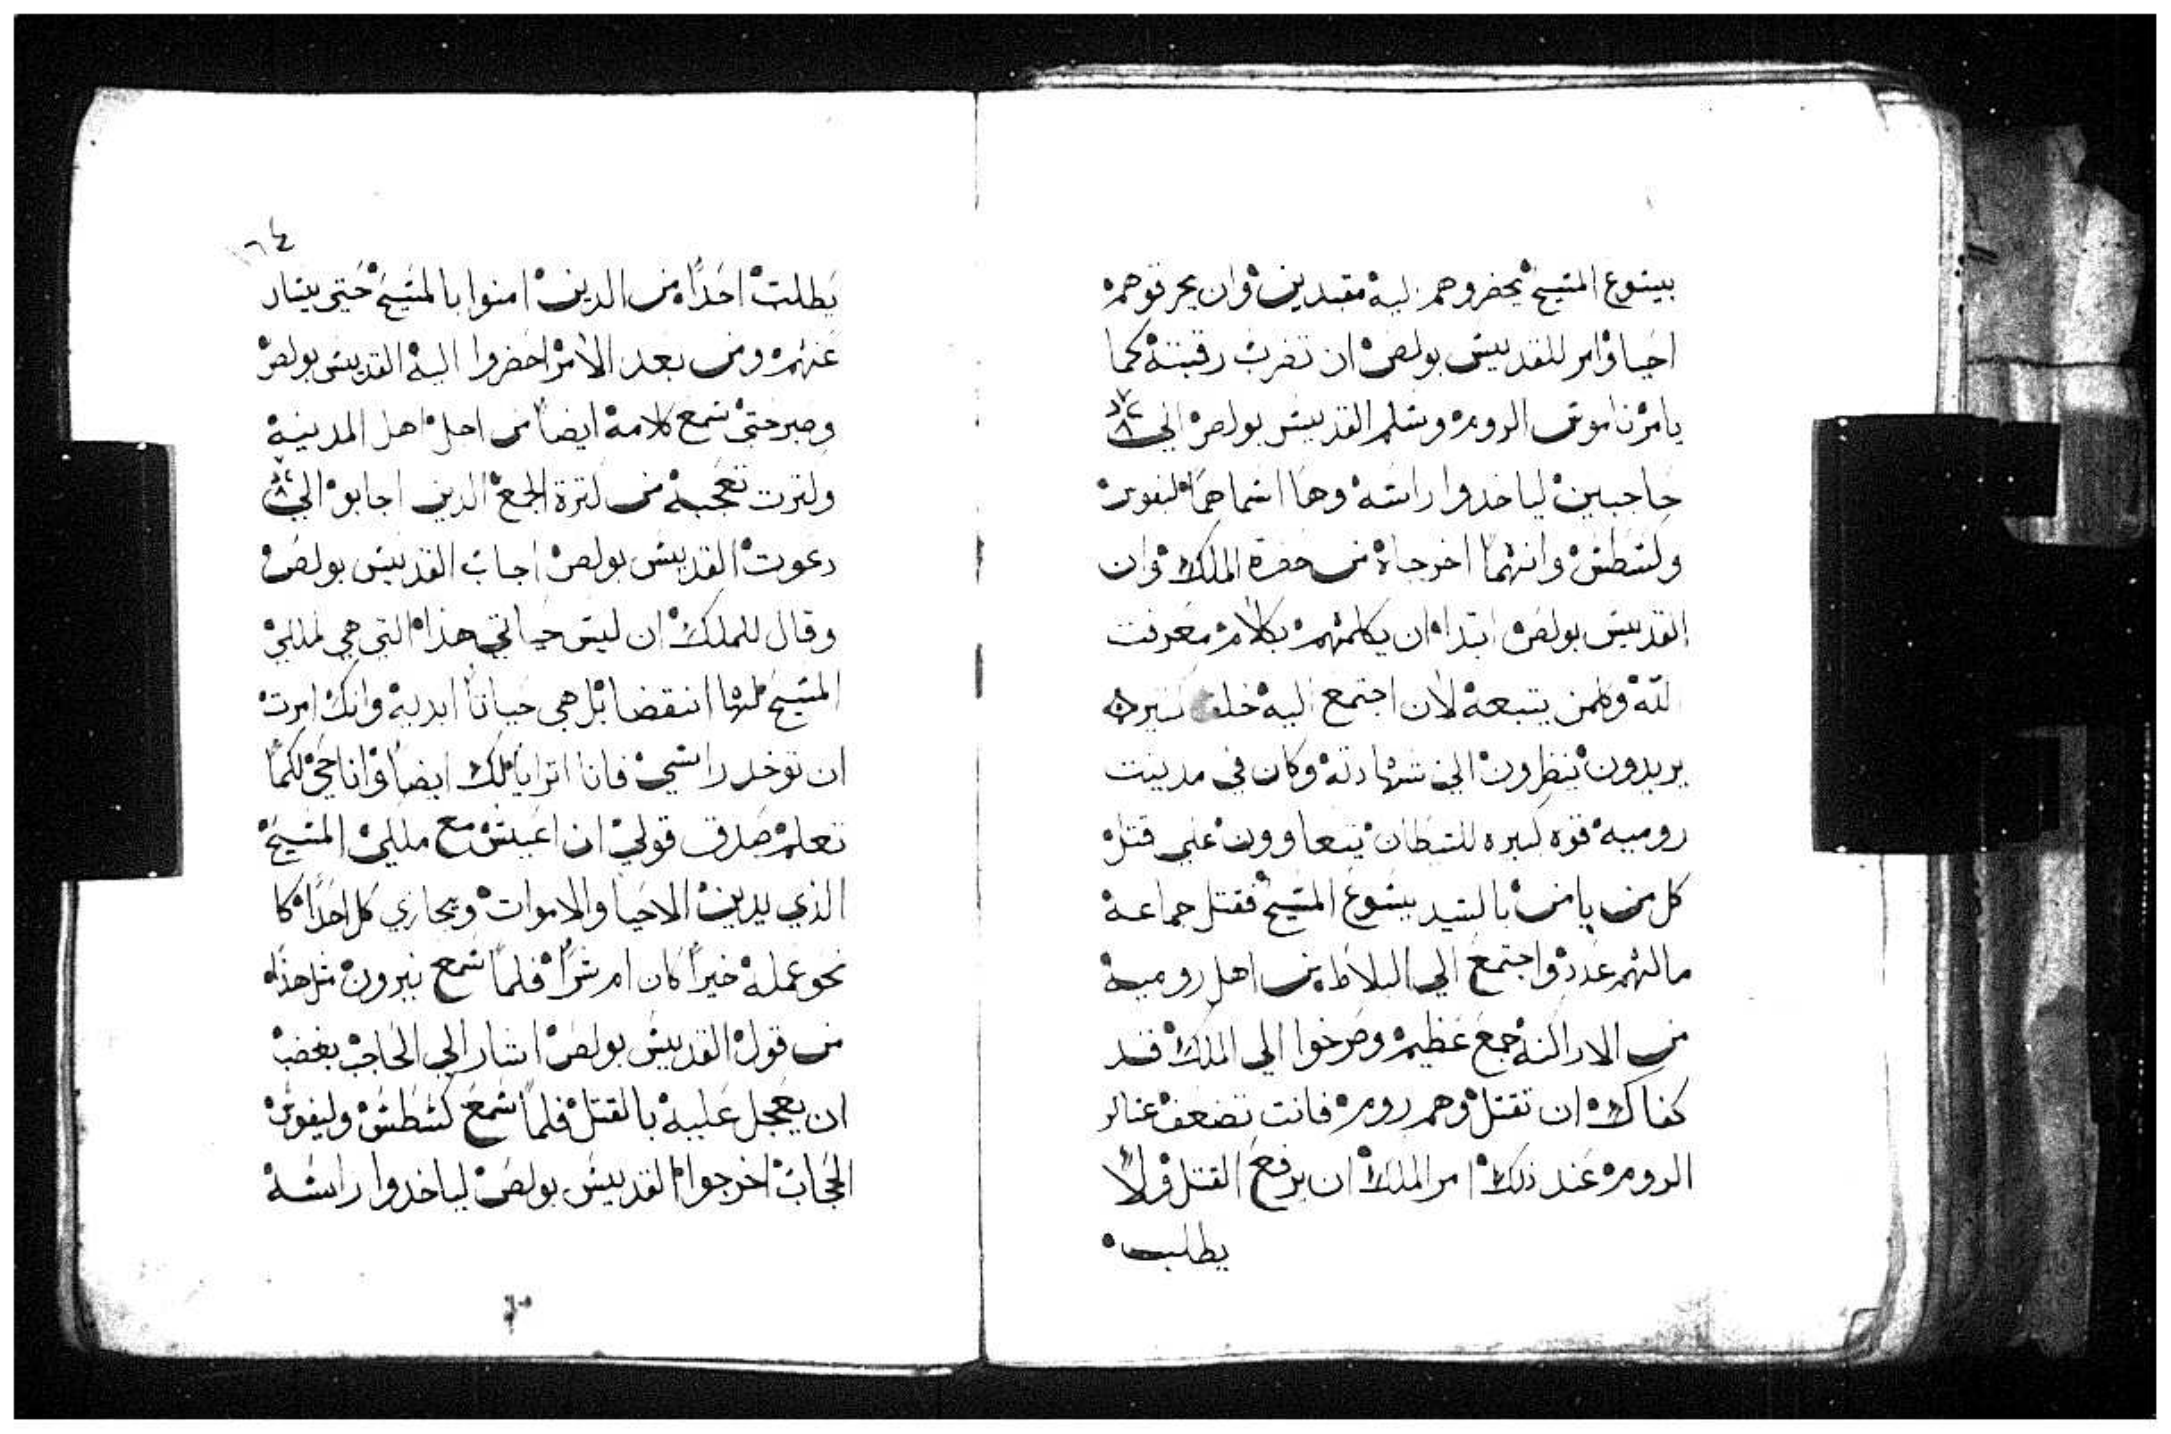 بيسوع المسيح يحضروهم اليه مقيدين وان يحرقوهم
احيا وامر للقديس بولص ان تضرب رقبته كما
يامر ناموس الروم وسلم القديس بولص الي
حاجبين لياخدوا راسه وها اسماهما لنفوس
وكسطس وانهما اخرجاه من حضرة الملك وان
القديس بولص ابتدا ان يكلمهم بكلام معرفت
الله وكلمن يتبعه لان اجتمع اليه خلق كتيره
يريدون ينظرون الي شهادته وكان في مدينت
روميه قوه كبيره للشيطان يتعاوون علي قتل
كل من يامن بالسيد يسوع المسيح فقتل جماعه
مالهم عدد واجتمع الي البلاط من اهل روميه
من الاراكنه جمع عظيم وصرخوا الي الملك قد
كفاك ان تقتل وهم روم فانت تضعف عنالر
الروم عند ذلك امر الملك ان يرفع القتل ولا
يطلب
١٦٤
يطلب احداً من الدين امنوا بالمسيح حتي يشار
عنهم ومن بعد الامر احضروا اليه القديس بولص
وصبر حتي سمع كلامه ايضاً من اجل اهل المدينه
وكترت تعجبه من كترة الجمع الدين اجابوا الي
دعوت القديس بولص اجاب القديس بولص
وقال للملك ان ليس حياتي هذا التي هي لملكي
المسيح لها انقضا بل هي حياتاً ابديه وانك امرت
ان توخد راسي فانا اترايا لك ايضاً وانا حي لكما
تعلم صدق قولي ان اعيش مع ملكي المسيح
الذي يدين الاحيا والاموات ويجازي كل احداً كا
نحو عمله خيراً كان ام شراً فلما سمع نيرون مثل هذا
من قول القديس بولص اشار الي الحاجب بغضب
ان يعجل عليه بالقتل فلما سمع كسطس وليفوس
الحجاب اخرجوا القديس بولص لياخدوا راسه